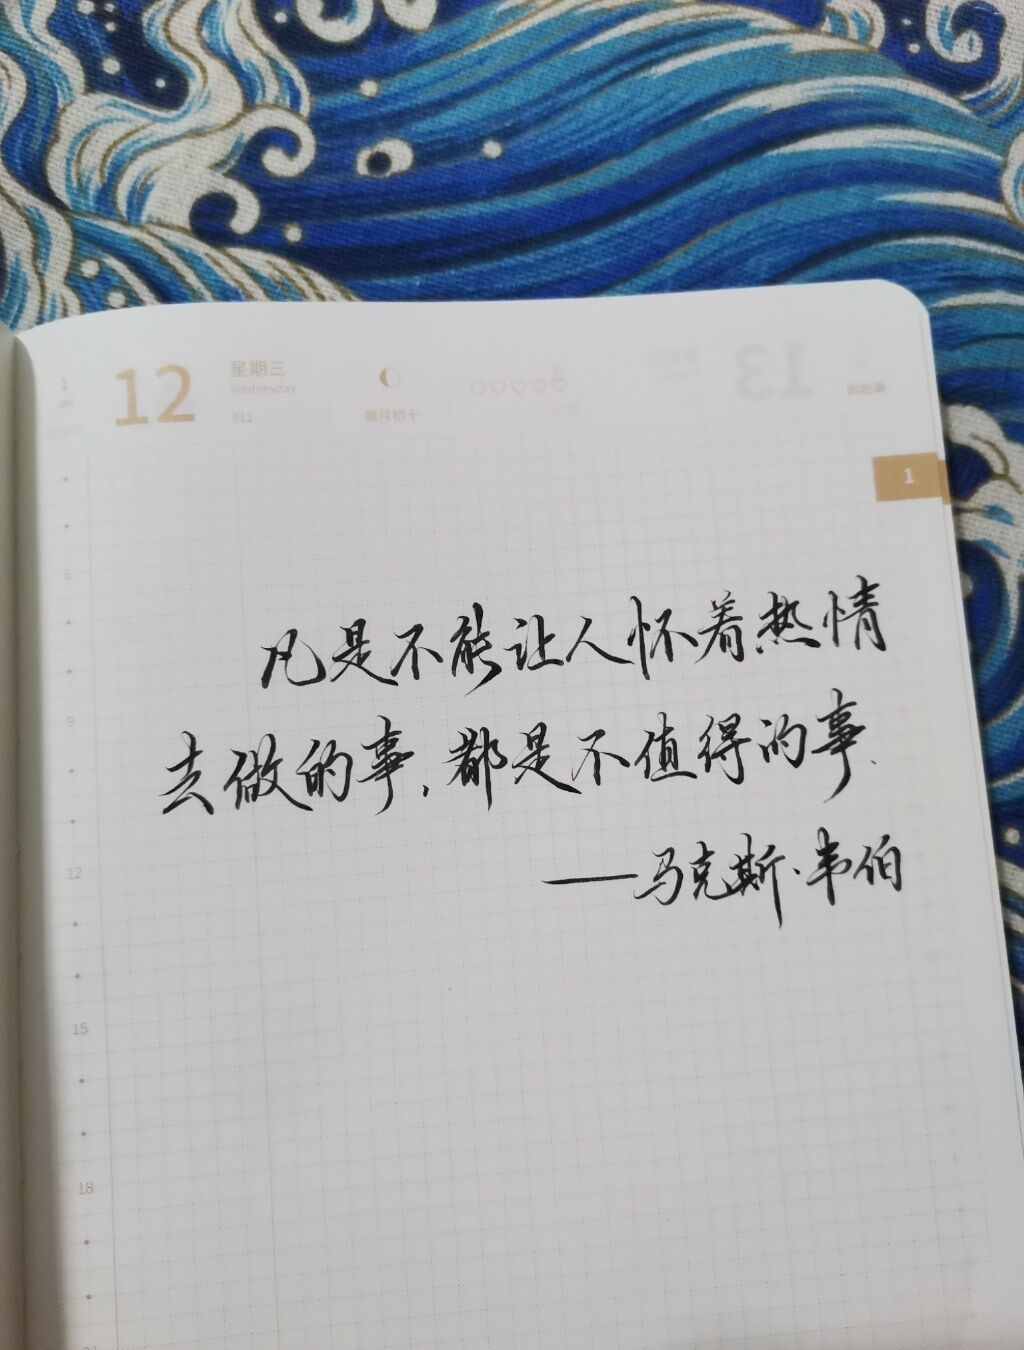 1
12
星期三
Wednesday
012
腊月初十
13
1
6
凡是不能让人怀着热情
9
去做的事,都是不值得的事.
12
——马克斯·韦伯
15
18
21